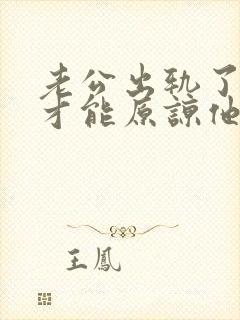 老公出轨了
才能原谅他
王鳳